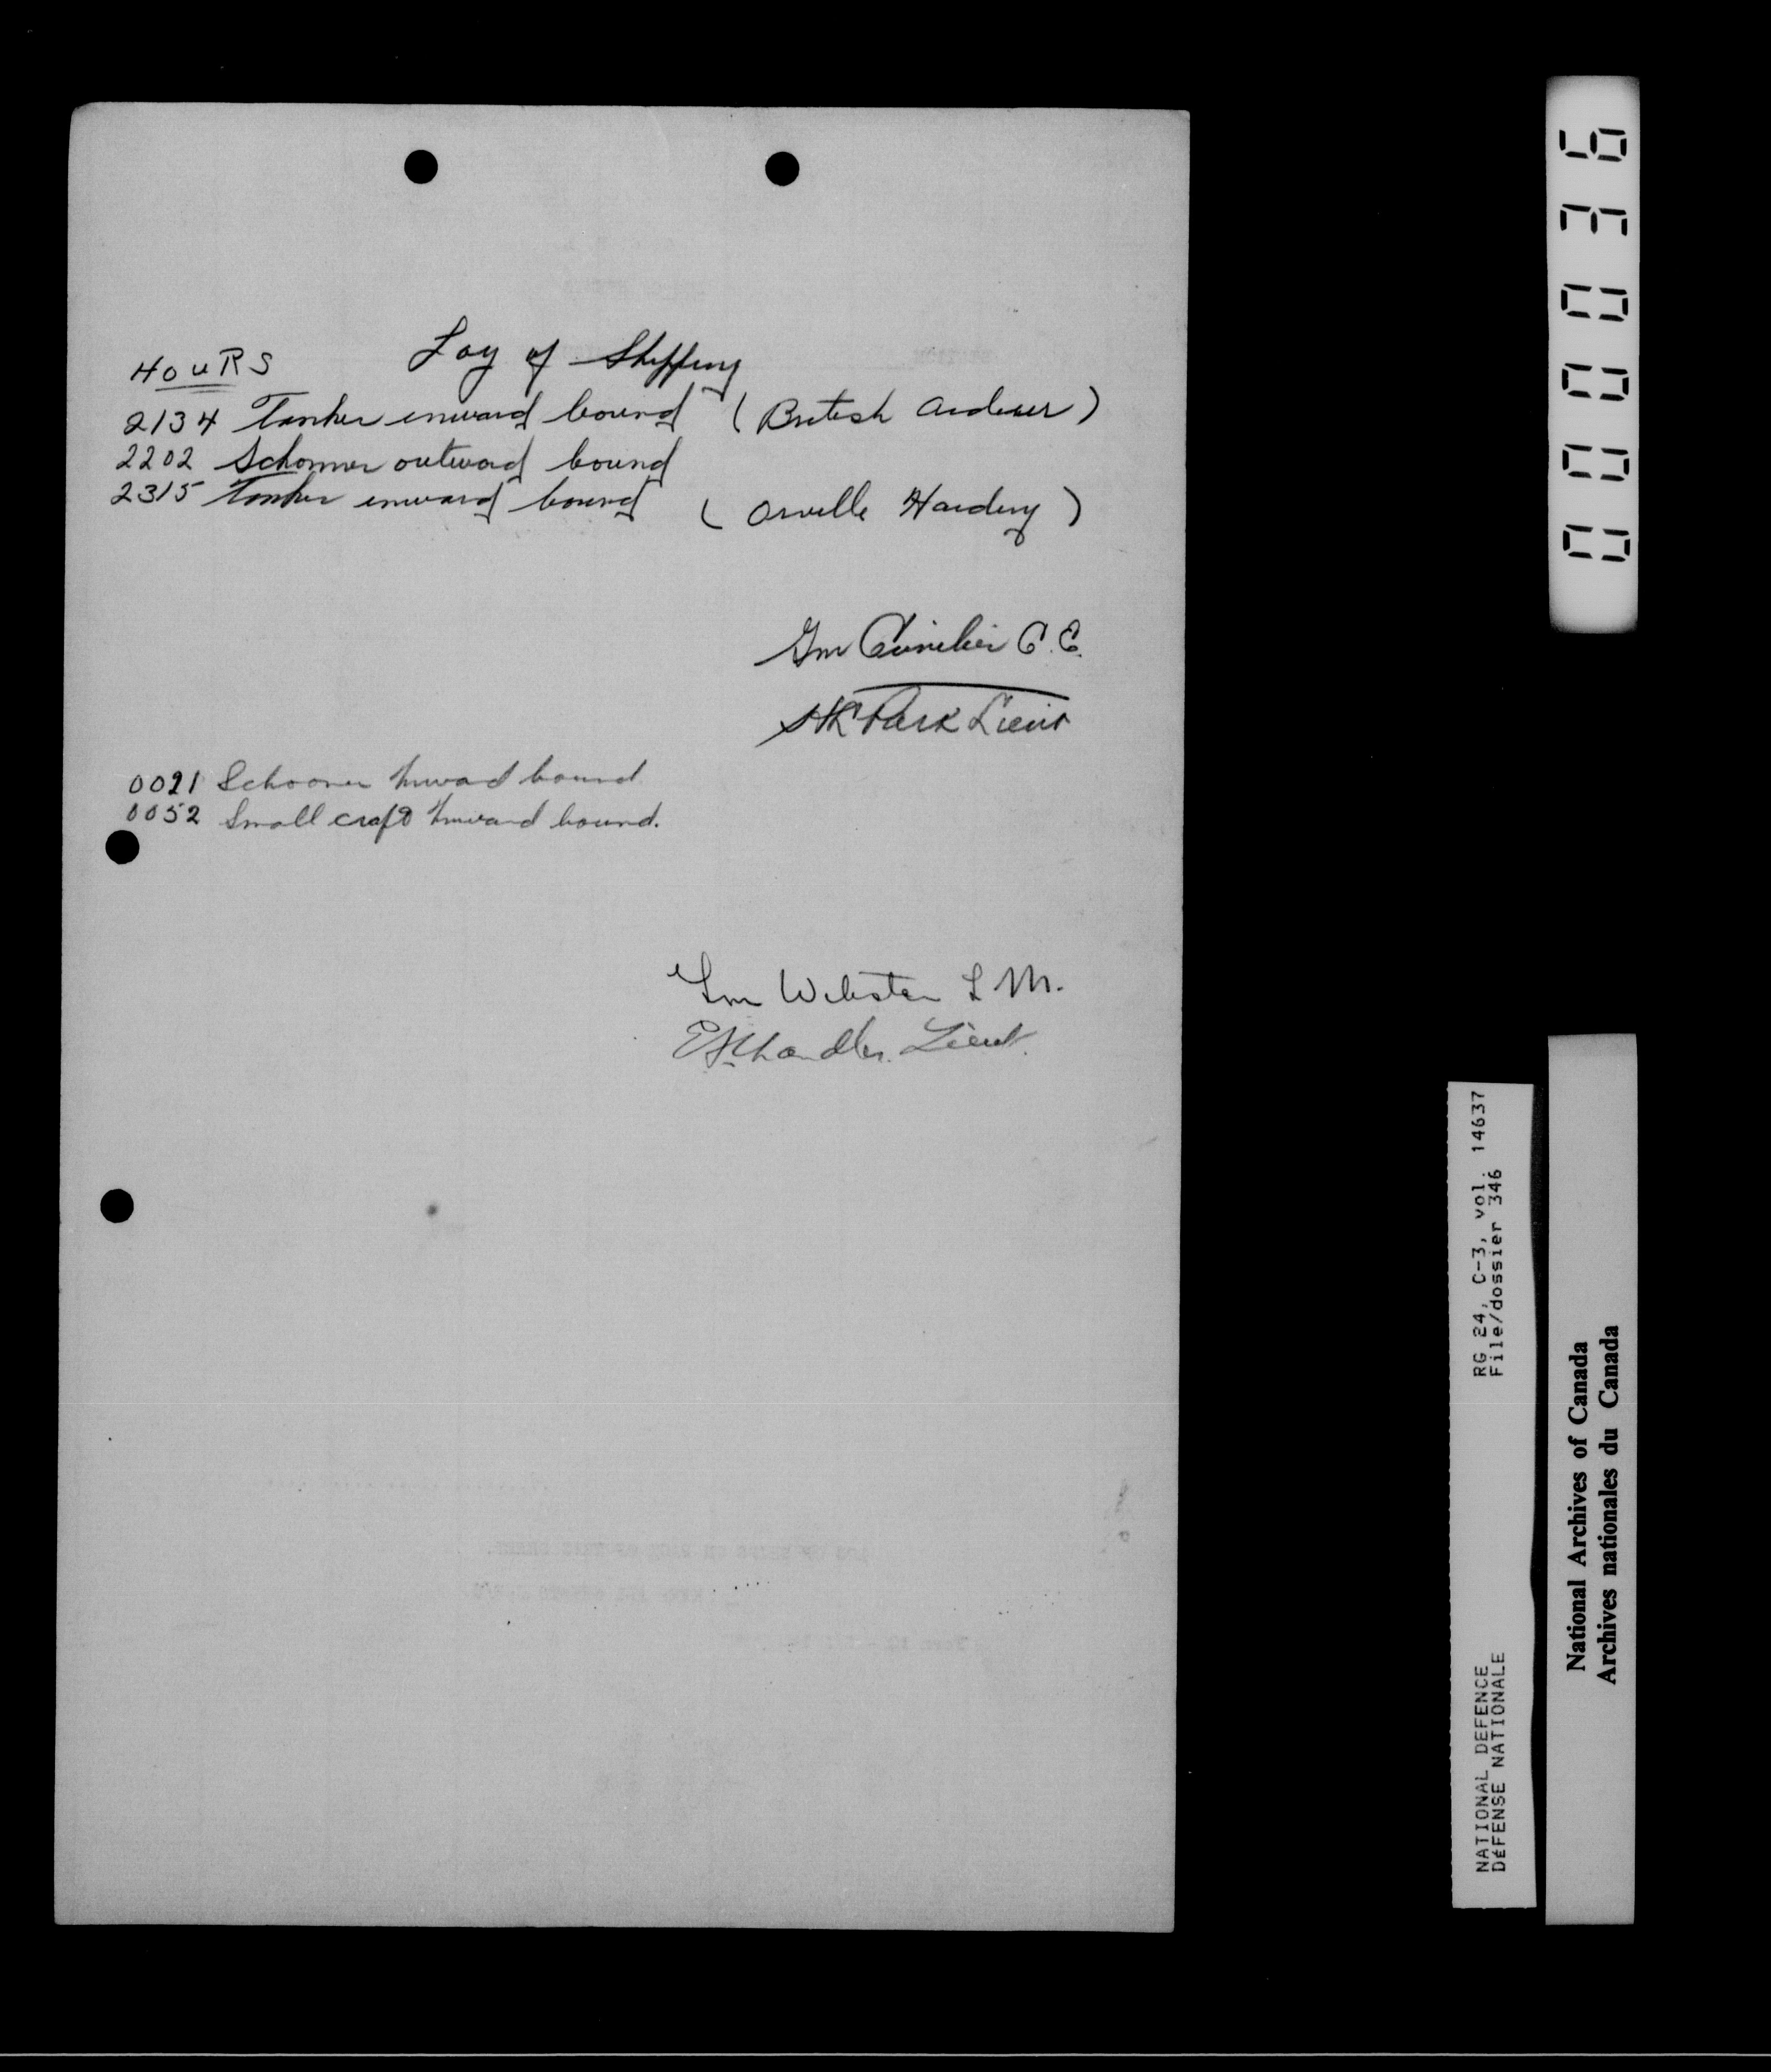 HOURS Log of Shipping
2134 Tanker inward bound (British Ardour)
2202 Schooner outward bound
2315 Tanker inward bound (Orville Harding)
Gnr
Park Lieut
0021 Schooner Inward bound
0052 Small craft Inward bound.
Gnr Webster L M.
Chandler. Lieut.
000036
RG 24, C-3, vol. 14637
File/dossier 346
NATIONAL DEFENCE
DÉFENSE NATIONALE
National Archives of Canada
Archives nationales du Canada